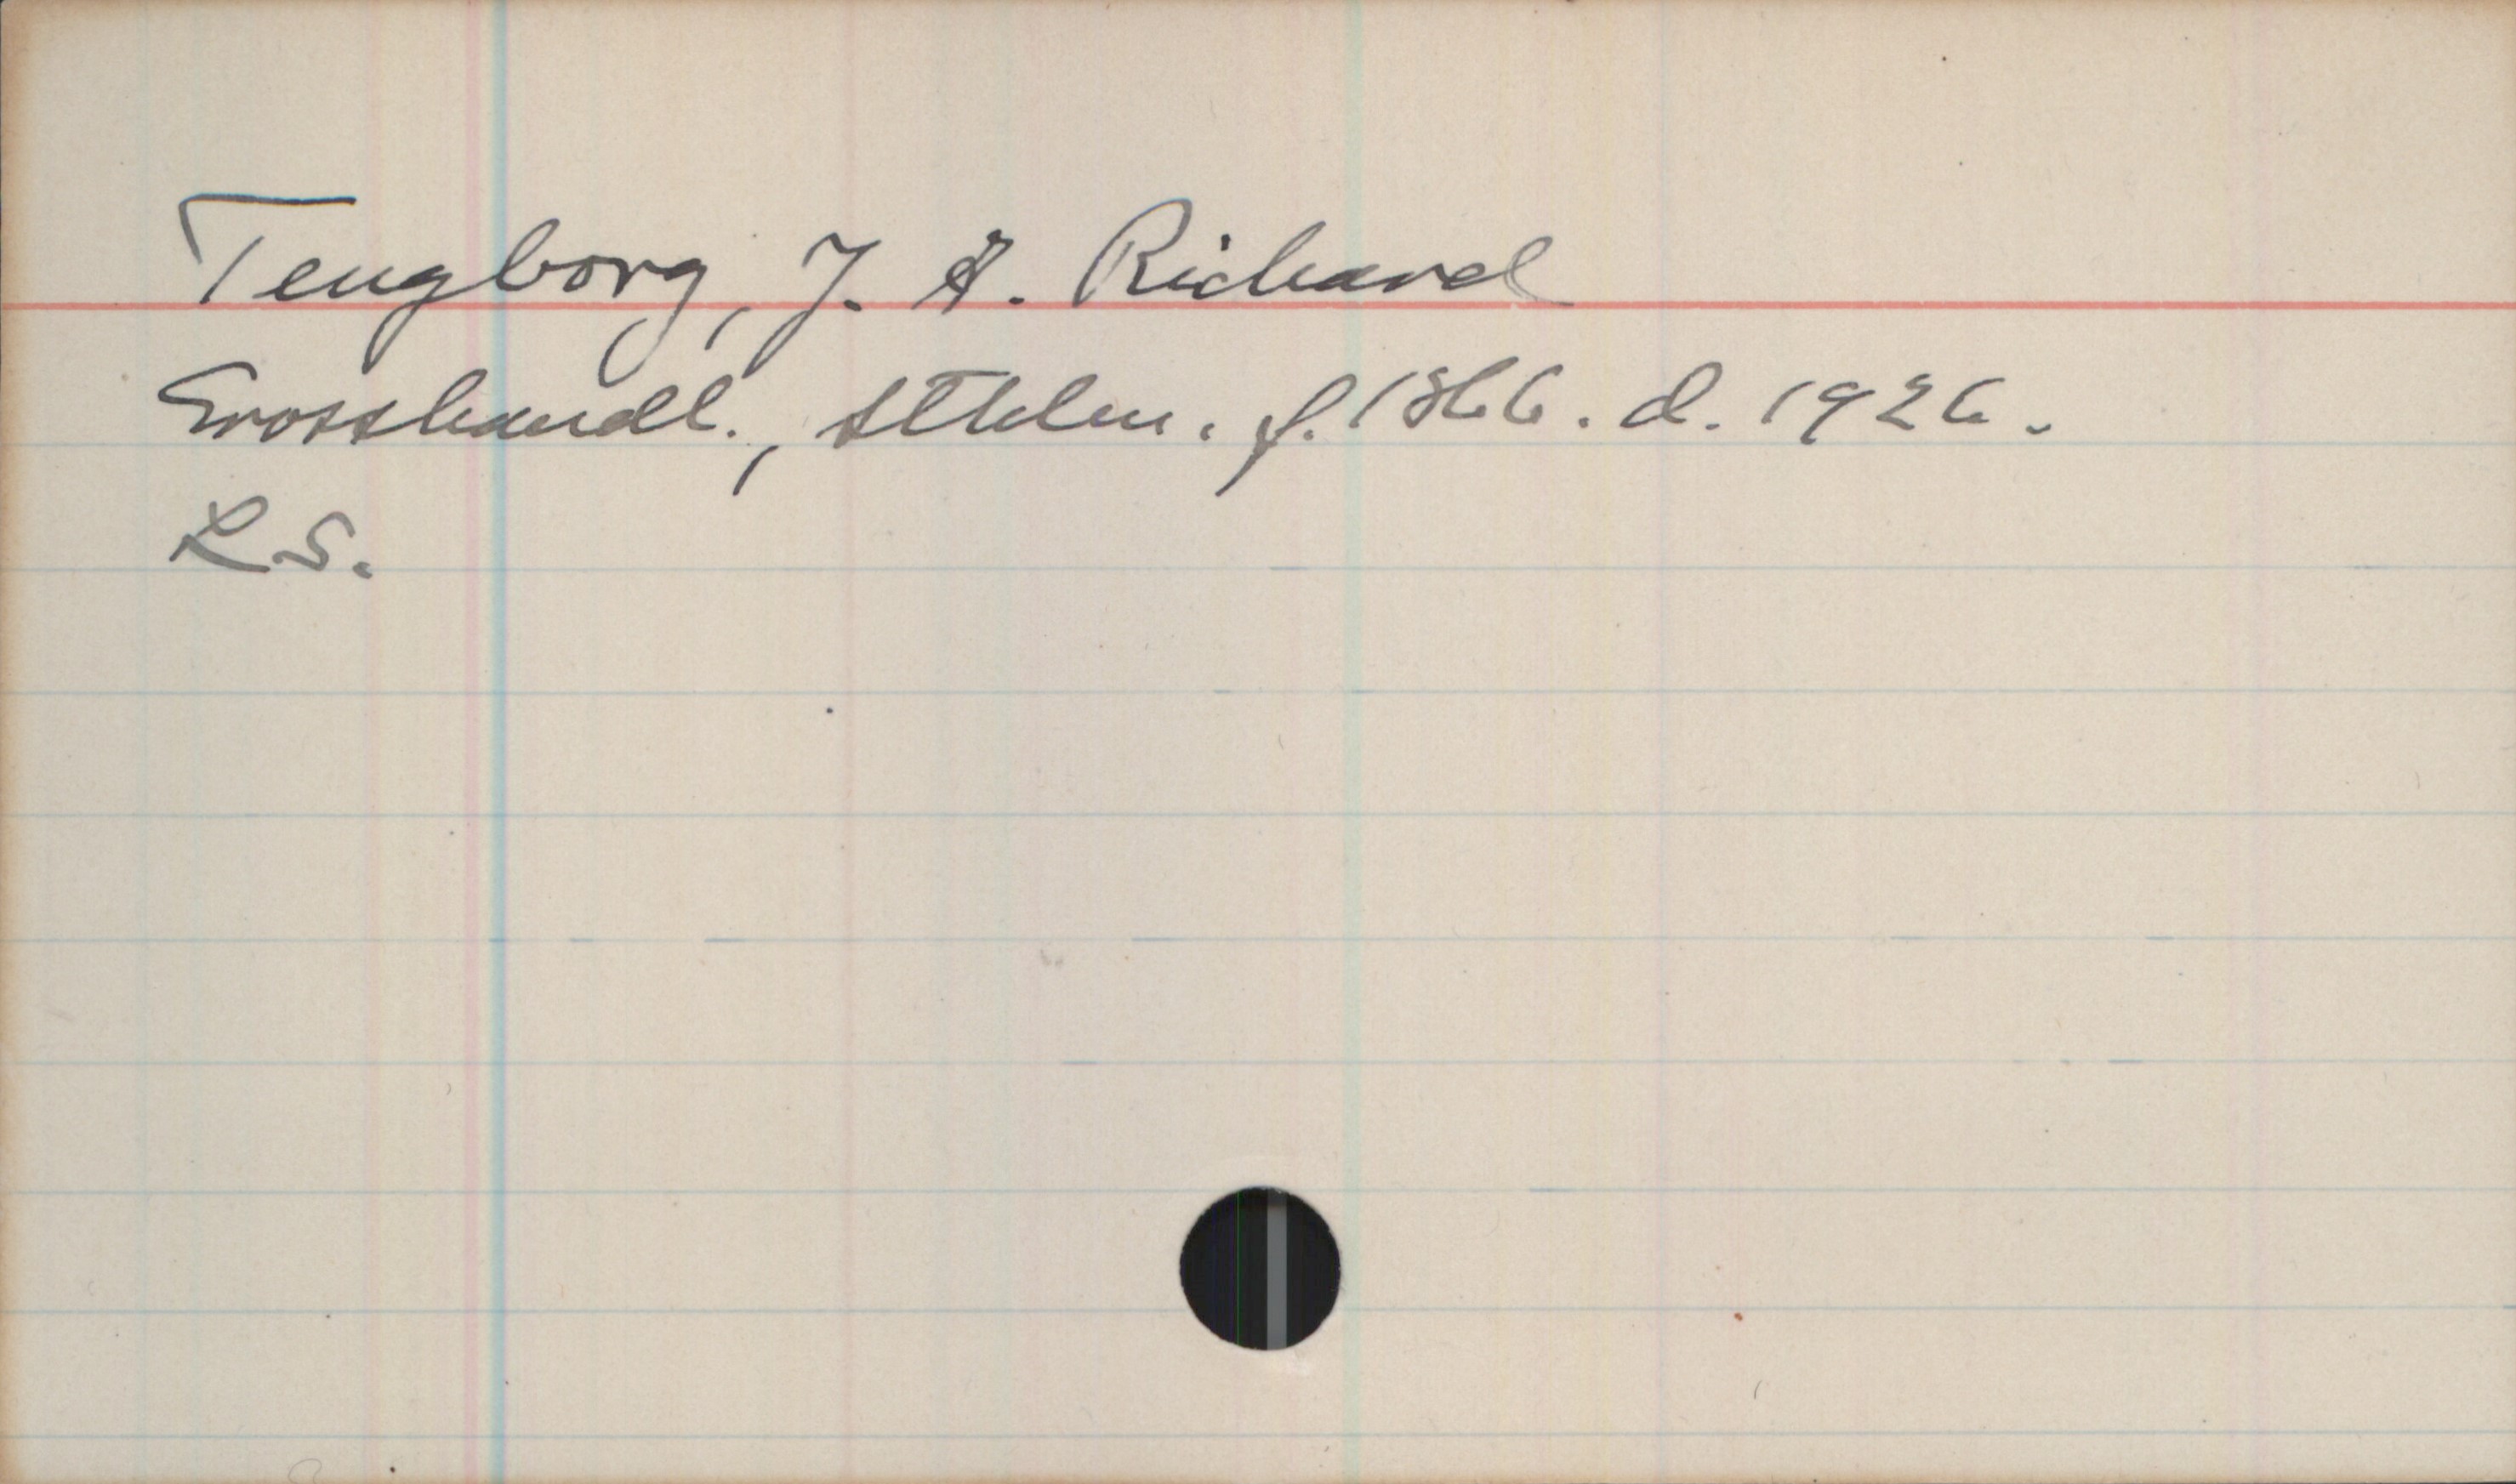 Tengborg, J. A. Richard
Grosshandl., Sthlm. f. 1866. d. 1926.
L S.